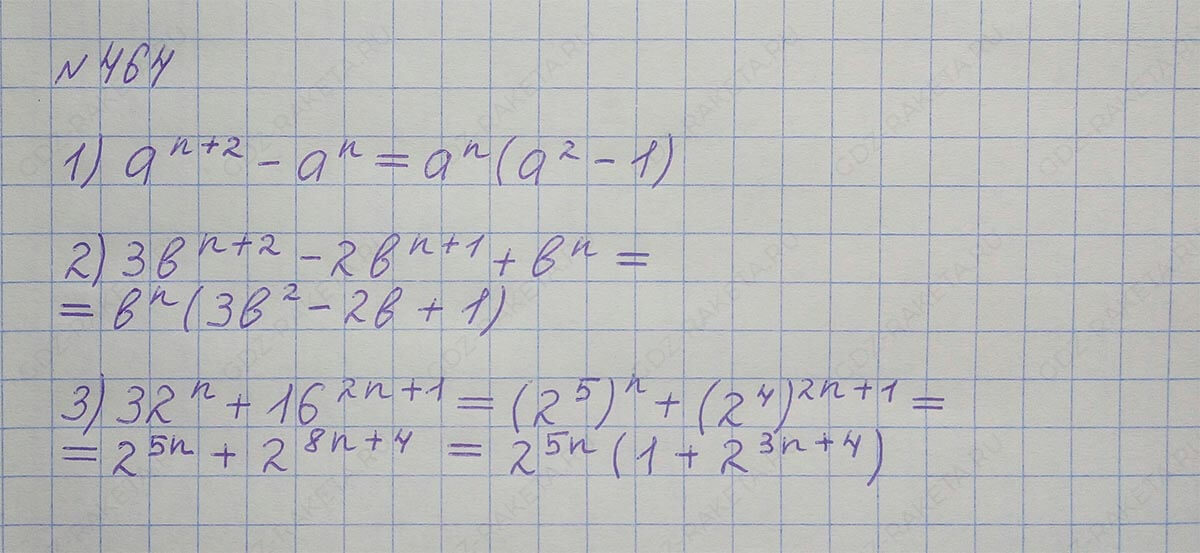 № 464
1) a^{n+2} - a^n = a^n (a^2 - 1)
2) 3в^{n+2} - 2в^{n+1} + в^n =
= в^n (3в^2 - 2в + 1)
3) 32^n + 16^{2n+1} = (2^5)^n + (2^4)^{2n+1} =
= 2^{5n} + 2^{8n+4} = 2^{5n} (1 + 2^{3n+4})
GDZ-RAKETA.RU